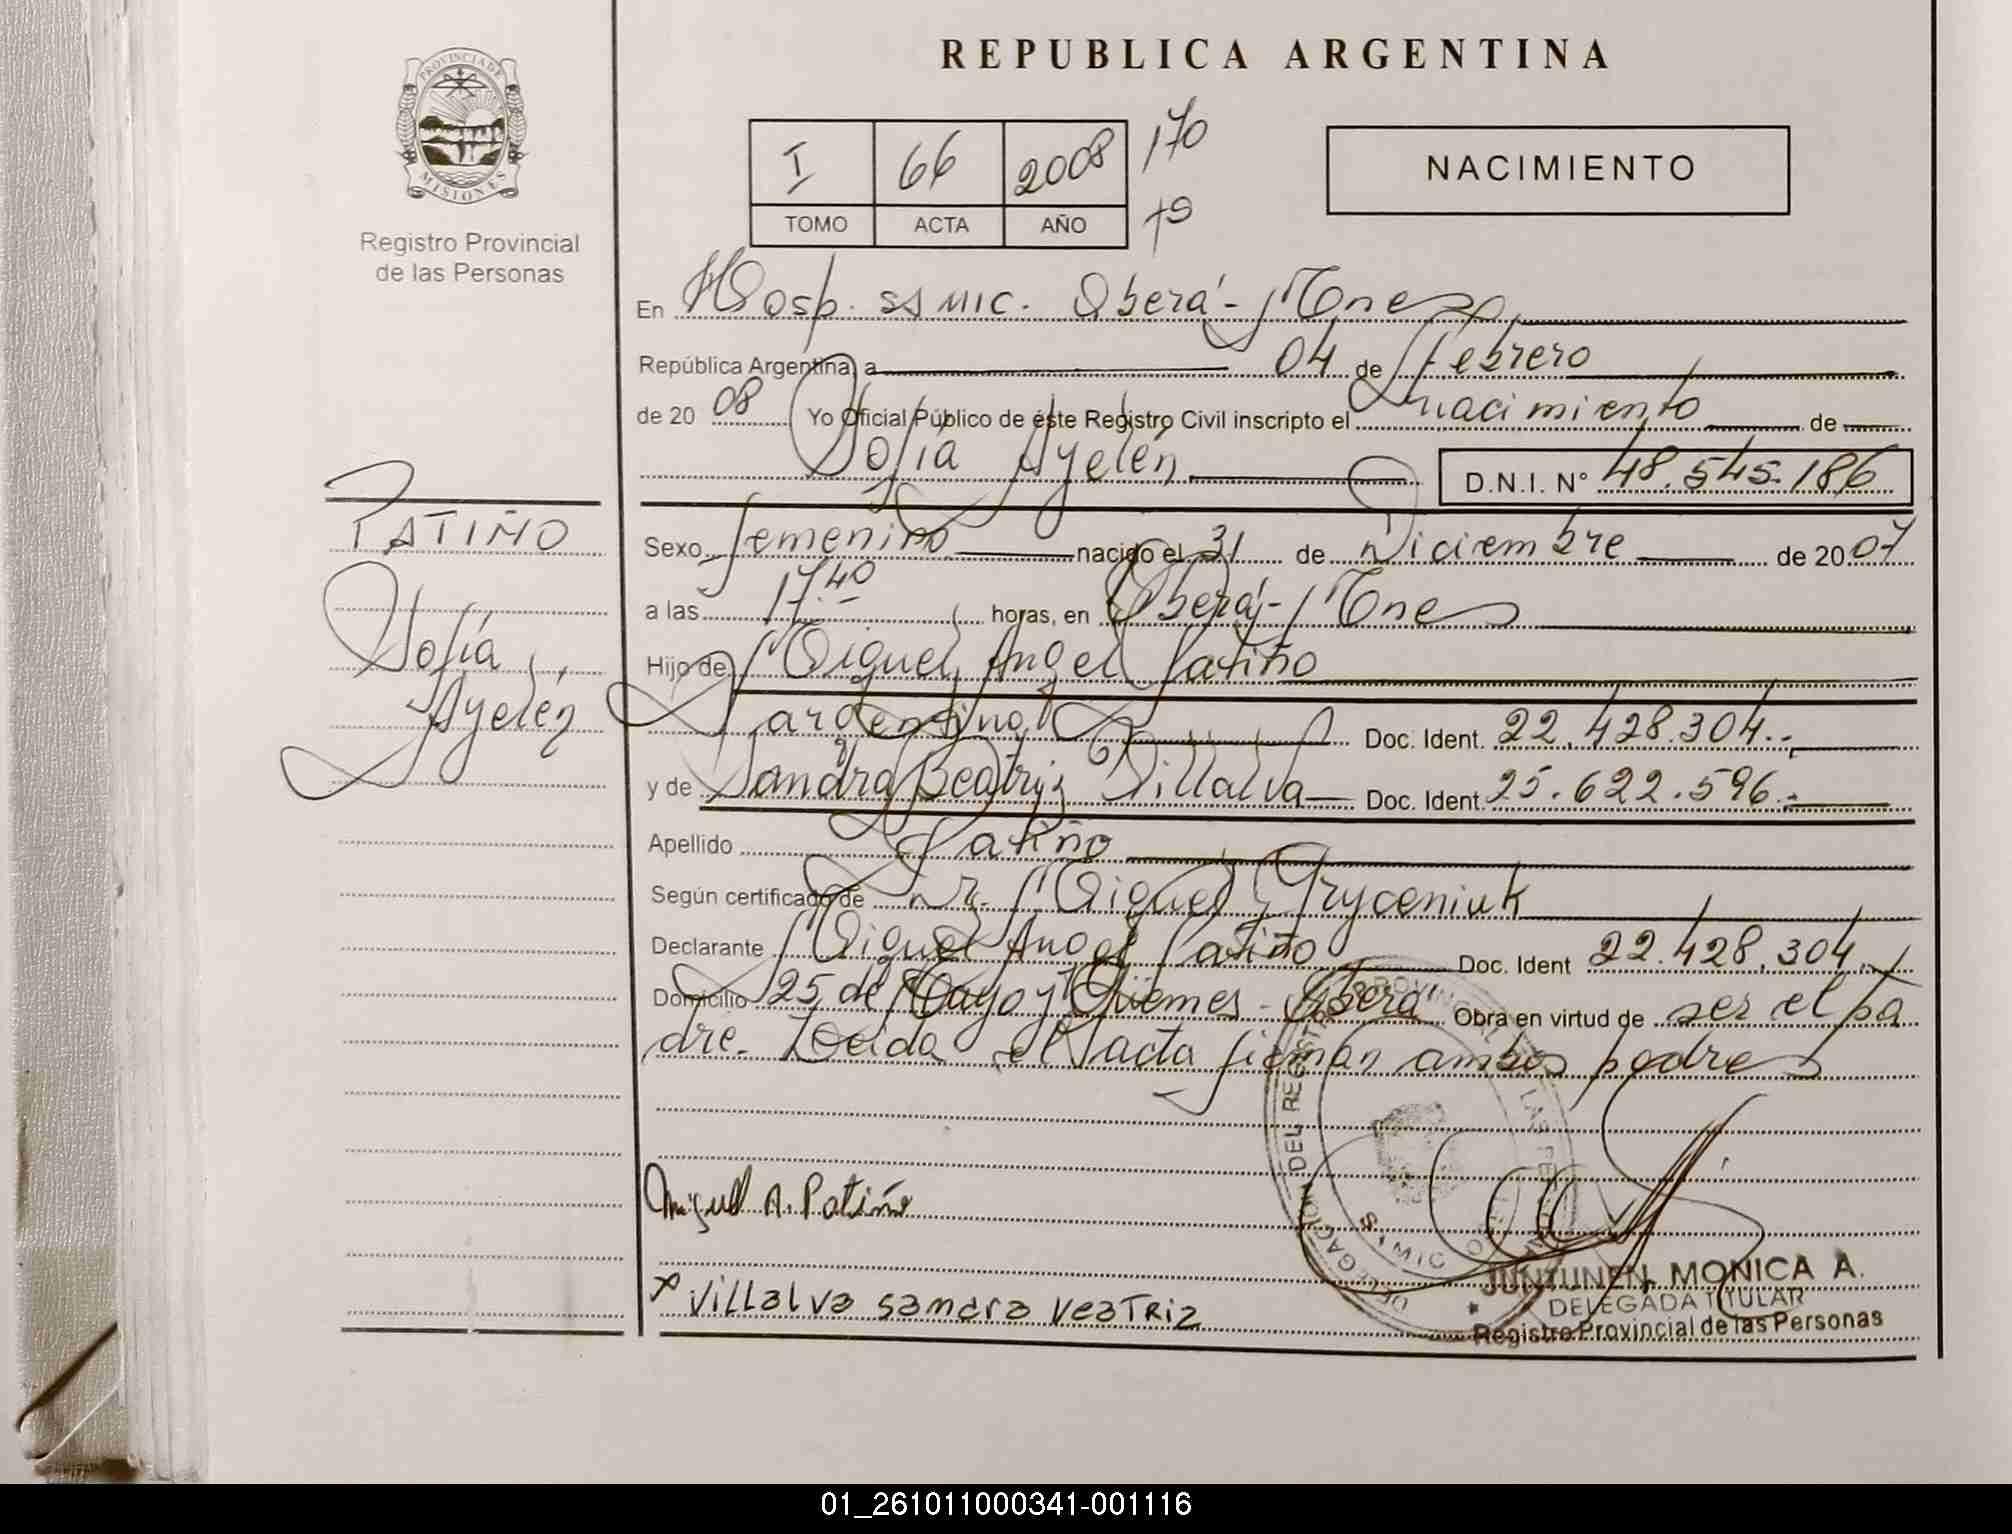 REPUBLICA ARGENTINA
PROVINCIA DE
MISIONES
Registro Provincial
de las Personas
I 66 2008 170
TOMO ACTA AÑO
NACIMIENTO
En Hosp. SAMIC. Oberá - Mnes
República Argentina, a 04 de Febrero
de 20 08 Yo Oficial Público de éste Registro Civil inscripto el nacimiento de
Sofía Ayelén D.N.I. N° 48.545.186
PATIÑO
Sofía
Ayelén
Sexo femenino nacido el 31 de Diciembre de 20 07
a las 17.40 horas, en Oberá - Mnes
Hijo de Miguel Angel Patiño
argentino Doc. Ident. 22.428.304.-
y de Sandra Beatriz Villalva Doc. Ident. 25.622.596.-
Apellido Patiño
Según certificado de Dr. Miguel Gryceniuk
Declarante Miguel Angel Patiño Doc. Ident 22.428.304.-
Domicilio 25 de Mayo y Güemes - Oberá Obra en virtud de ser el pa
dre. Leida el acta firman ambos padres
Miguel A. Patiño
x Villalva Samdra Veatriz
DELEGACION DEL REGISTRO PROVINCIAL DE LAS PERSONAS
SAMIC
JUNTUNEN, MONICA A.
DELEGADA TITULAR
Registro Provincial de las Personas
01_261011000341-001116